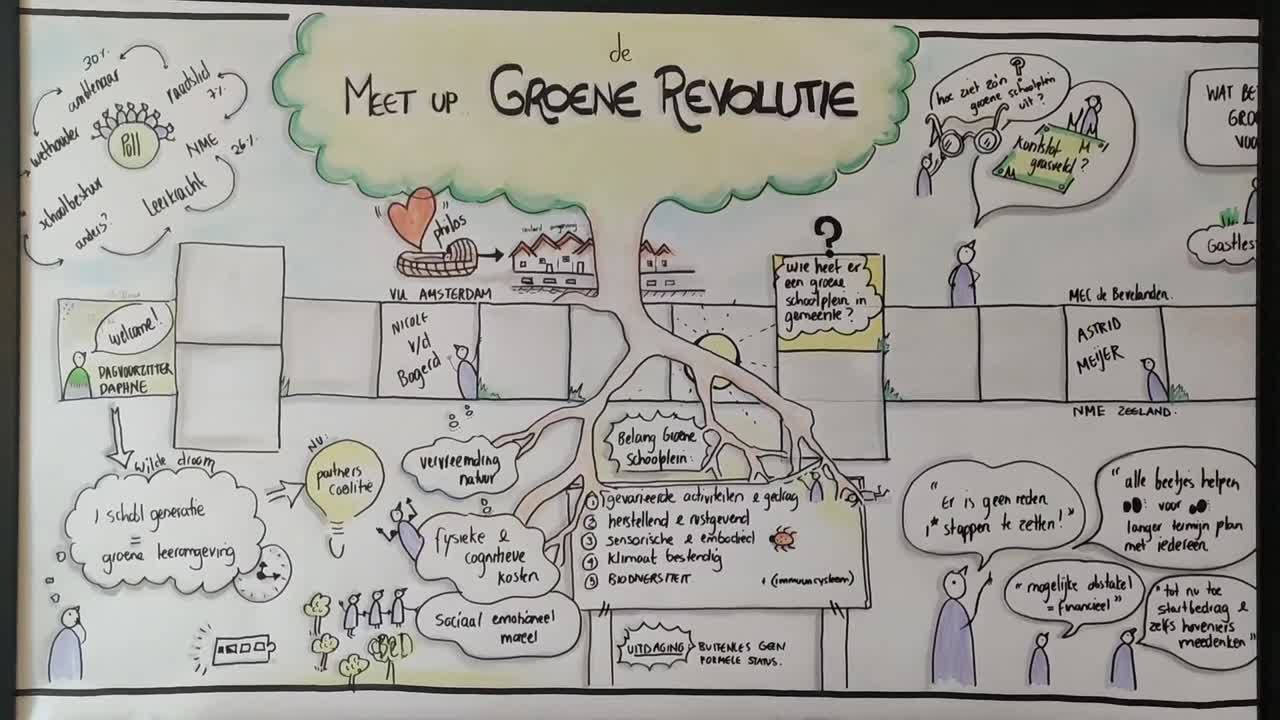 de
MEET UP GROENE REVOLUTIE
30%
ambtenaar
raadslid
7%
wethouder
Poll
NME
26%
schoolbestuur
leerkracht
anders?
"philos"
VU AMSTERDAM
welcome!
DAGVOORZITTER
DAPHNE
NICOLE
v/d
Bogerd
?
wie heeft er
een groene
schoolplein in
gemeente?
?
hoe ziet zo'n
groene schoolplein
uit?
kunstof
grasveld?
WAT BE
GRO
VOO
Gastles
MEC de Bevelanden.
ASTRID
MEIJER
NME ZEELAND.
wilde droom
1 school generatie
=
groene leeromgeving
NU:
partners
coalitie
vervreemding
natuur
fysieke &
cognitieve
kosten
Sociaal emotioneel
moreel
Belang Groene
Schoolplein:
1 gevarieerde activiteiten & gedrag
2 herstellend & rustgevend
3 sensorische & embodied
4 klimaat bestendig
5 BIODIVERSITEIT + (immuunsysteem)
UITDAGING
BUITENLES GEEN
FORMELE STATUS.
"Er is geen reden
1e stappen te zetten!"
"alle beetjes helpen
voor
langer termijn plan
met iedereen
"mogelijke obstakel
= financieel"
"tot nu toe
startbedrag &
zelfs hoveniers
meedenken"